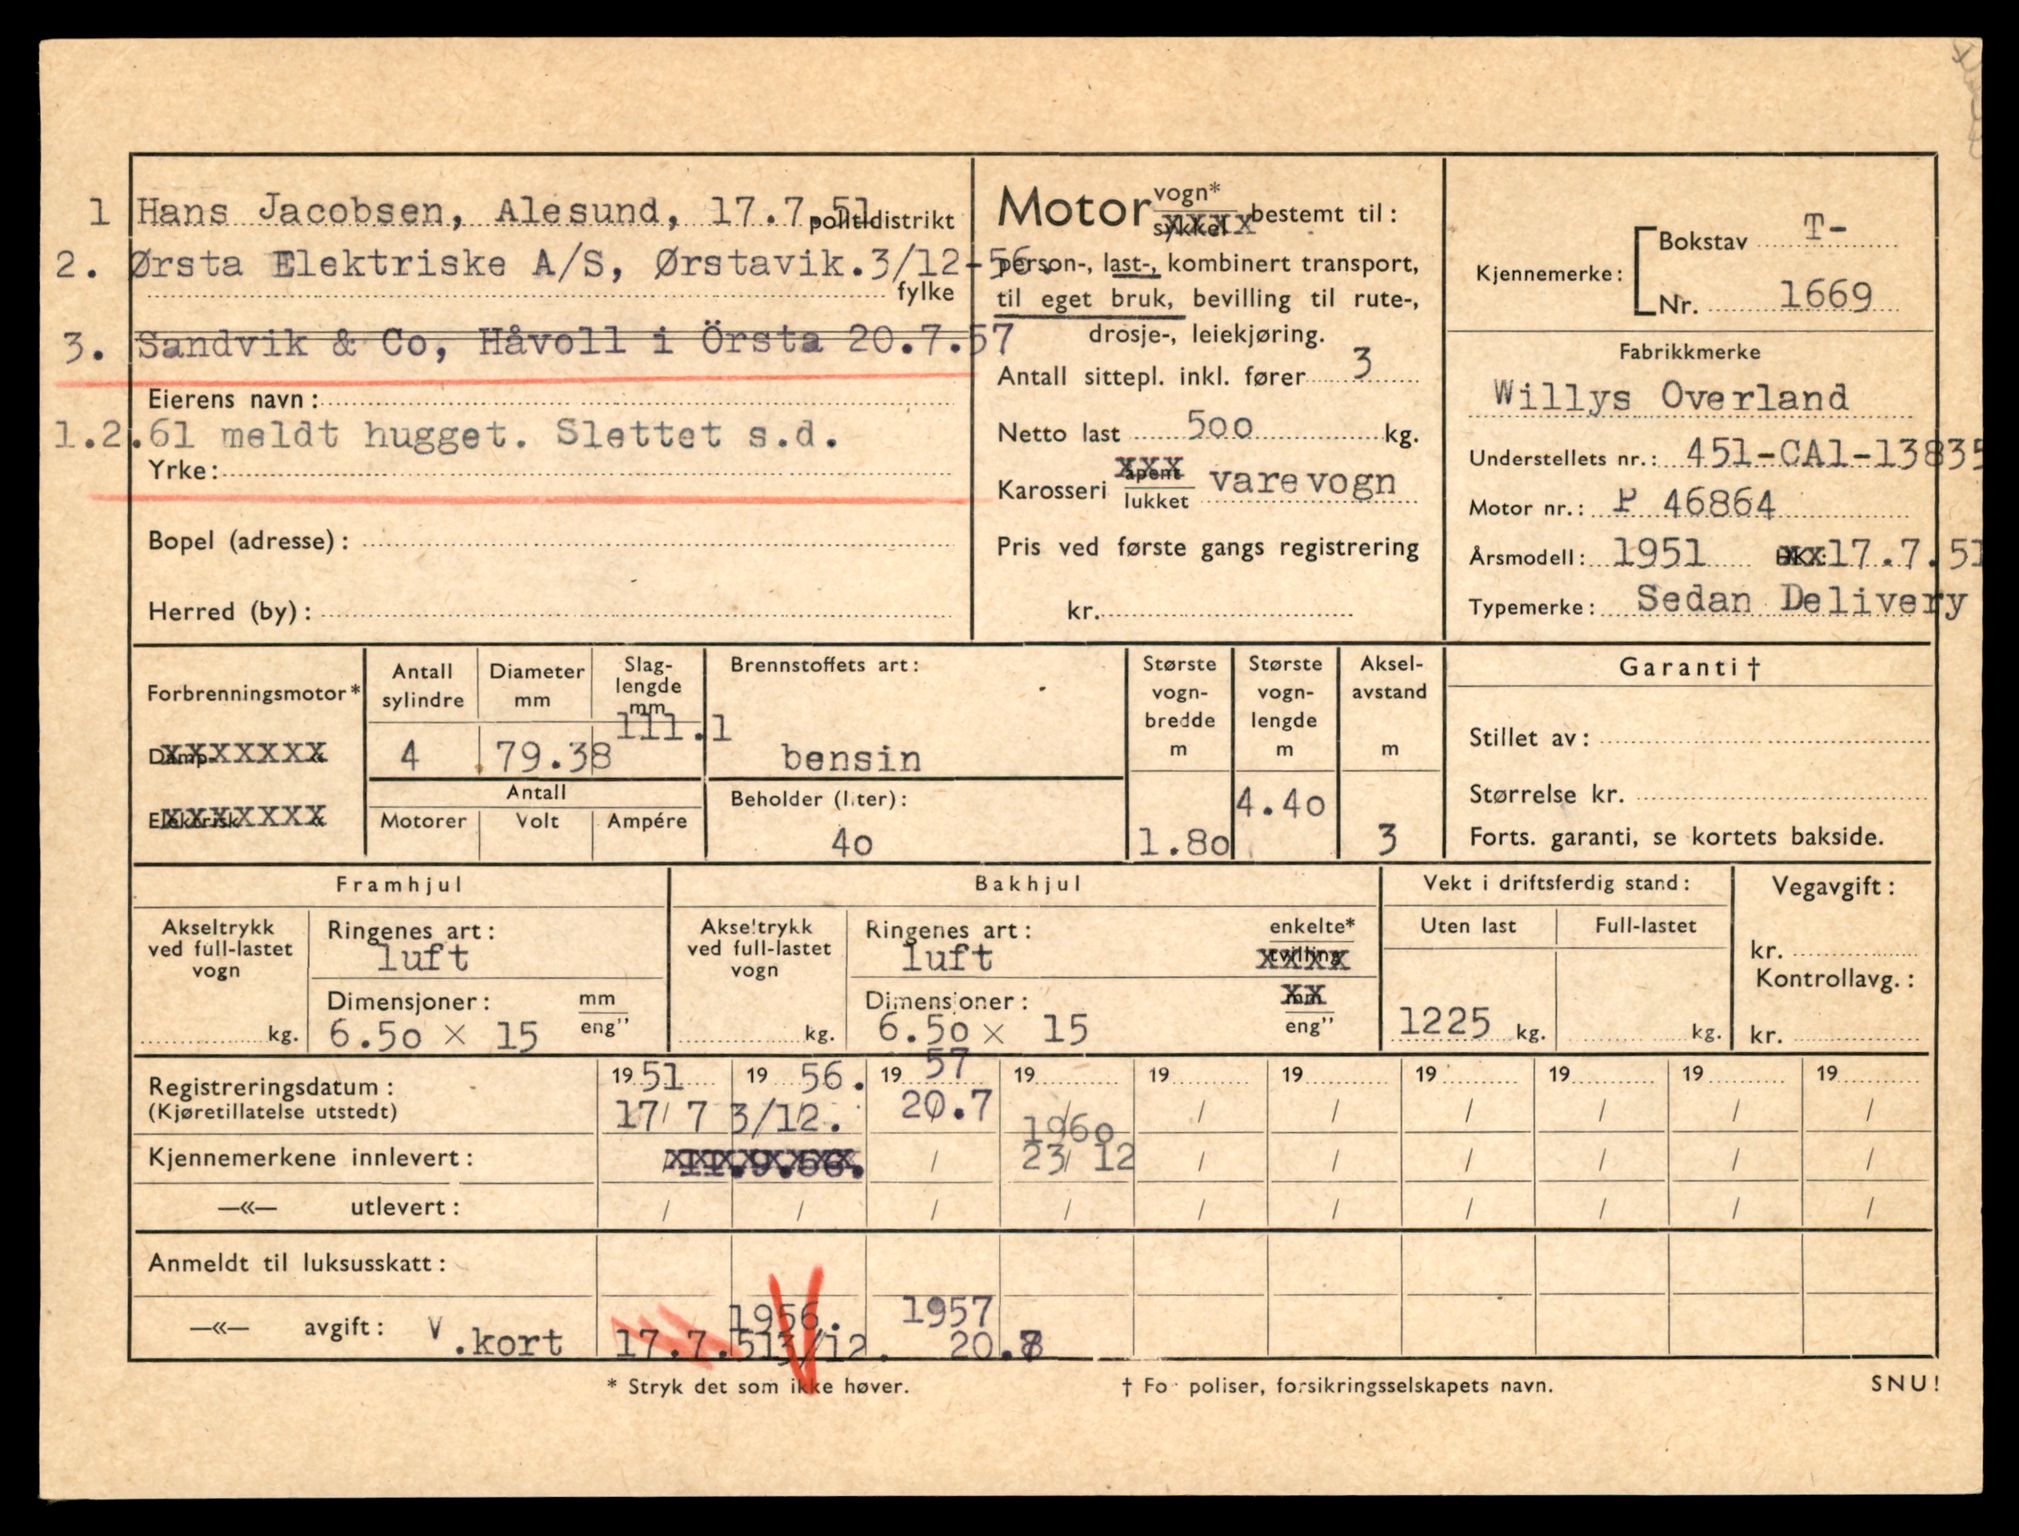 1 Hans Jacobsen, Alesund, 17.7.51 politidistrikt
2. Ørsta Elektriske A/S, Ørstavik.3/12-56.
fylke
3. Sandvik & Co, Håvoll i Örsta 20.7.57
Eierens navn:
1.2.61 meldt hugget. Slettet s.d.
Yrke:
Bopel (adresse):
Herred (by):
Motor vogn* / sykkel bestemt til:
person-, last-, kombinert transport,
til eget bruk, bevilling til rute-,
drosje-, leiekjøring.
Antall sittepl. inkl. fører 3
Netto last 500 kg.
Karosseri åpent / lukket varevogn
Pris ved første gangs registrering
kr.
Kjennemerke: Bokstav T-
Nr. 1669
Fabrikkmerke
Willys Overland
Understellets nr.: 451-CA1-13835
Motor nr.: P 46864
Årsmodell: 1951 17.7.51
Typemerke: Sedan Delivery
Forbrenningsmotor*
Damp- xxxxxxx
Elektrisk xxxxxxx
Antall sylindre
4
Diameter mm
79.38
Slag-
lengde
mm
111.1
Antall
Motorer Volt Ampére
Brennstoffets art:
bensin
Beholder (liter):
40
Største
vogn-
bredde
m
1.80
Største
vogn-
lengde
m
4.40
Aksel-
avstand
m
3
Garanti †
Stillet av:
Størrelse kr.
Forts. garanti, se kortets bakside.
Framhjul
Akseltrykk
ved full-lastet
vogn
kg.
Ringenes art:
luft
Dimensjoner: mm / eng''
6.50 x 15
Bakhjul
Akseltrykk
ved full-lastet
vogn
kg.
Ringenes art: enkelte* / tvilling
luft xxxx
Dimensjoner: mm / eng''
6.50 x 15
Vekt i driftsferdig stand:
Uten last Full-lastet
1225 kg. kg.
Vegavgift:
kr.
Kontrollavg.:
kr.
Registreringsdatum: 19 51 19 56. 19 57 19 19 19 19 19 19 19
(Kjøretillatelse utstedt) 17/ 7 3/12. 20.7 / / / / / / /
1960
Kjennemerkene innlevert: 11.9.56. / 23/ 12 / / / / / /
—«— utlevert: / / / / / / / / / /
Anmeldt til luksusskatt:
1956. 1957
—«— avgift: V.kort 17.7.51 3/12. 20.8
* Stryk det som ikke høver.
† For poliser, forsikringsselskapets navn.
SNU!